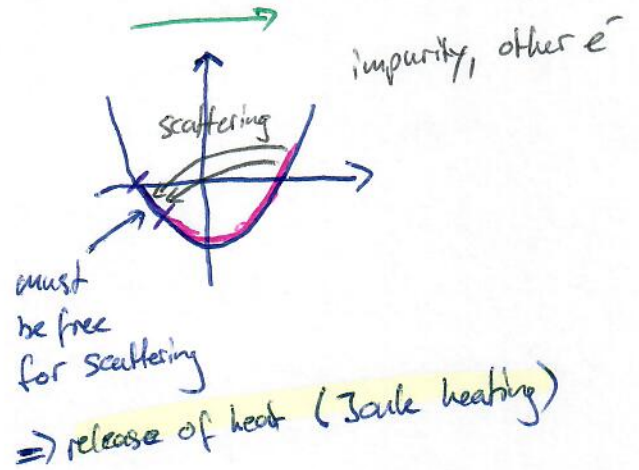 impurity, other e⁻
scattering
must
be free
for scattering
=> release of heat (Joule heating)